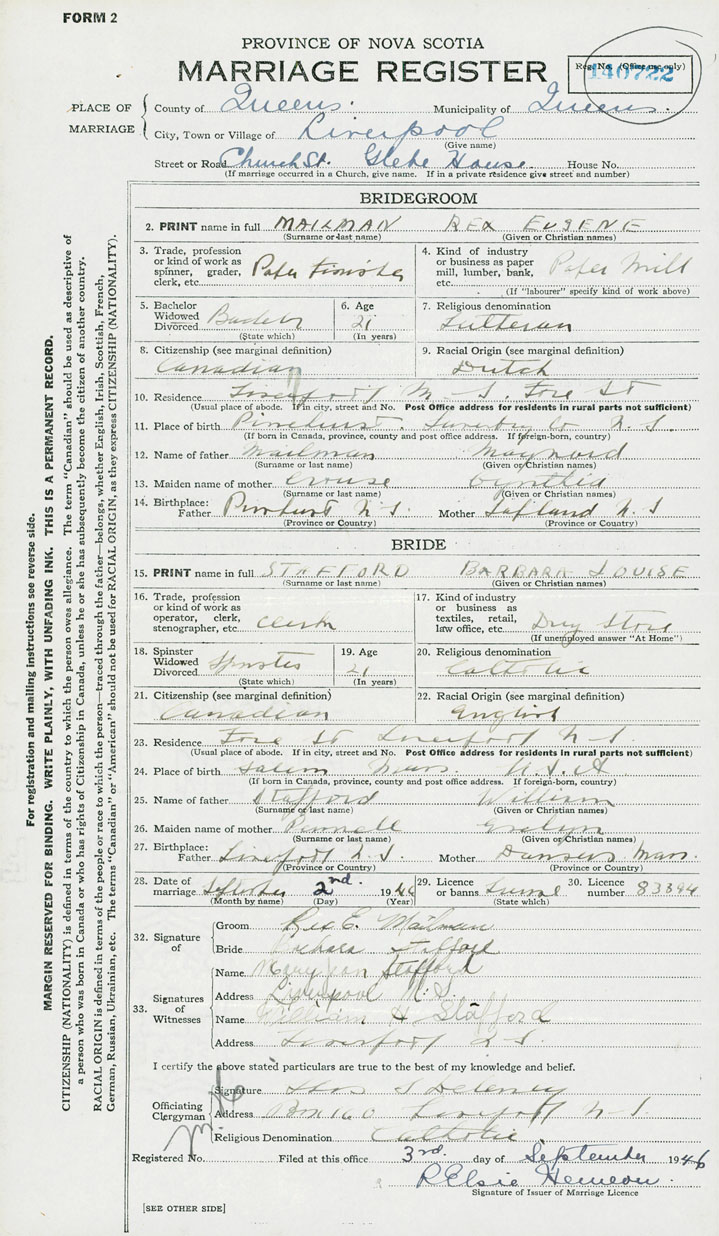 FORM 2
PROVINCE OF NOVA SCOTIA
MARRIAGE REGISTER
Reg. No. (Office use only)
140722
PLACE OF MARRIAGE
County of Queens. Municipality of Queens.
City, Town or Village of Liverpool
(Give name)
Street or Road Church St. Glebe House. House No.
(If marriage occurred in a Church, give name. If in a private residence give street and number)
BRIDEGROOM
2. PRINT name in full MAILMAN REX EUGENE
(Surname or last name) (Given or Christian names)
3. Trade, profession or kind of work as spinner, grader, clerk, etc. Paper Finisher
4. Kind of industry or business as paper mill, lumber, bank, etc. Paper Mill
(If "labourer" specify kind of work above)
5. Bachelor Widowed Divorced Bachelor
(State which)
6. Age 21
(In years)
7. Religious denomination Lutheran
8. Citizenship (see marginal definition) Canadian
9. Racial Origin (see marginal definition) Dutch
10. Residence Liverpool N.S. Fore St
(Usual place of abode. If in city, street and No. Post Office address for residents in rural parts not sufficient)
11. Place of birth Pinehurst. Lunenburg Co N.S.
(If born in Canada, province, county and post office address. If foreign-born, country)
12. Name of father Mailman Maynard
(Surname or last name) (Given or Christian names)
13. Maiden name of mother Crouse
(Surname or last name) (Given or Christian names)
14. Birthplace: Father Pinehurst N.S Mother Lapland N.S
(Province or Country) (Province or Country)
BRIDE
15. PRINT name in full STAFFORD BARBARA LOUISE
(Surname or last name) (Given or Christian names)
16. Trade, profession or kind of work as operator, clerk, stenographer, etc. Clerk
17. Kind of industry or business as textiles, retail, law office, etc. Drug Store
(If unemployed answer "At Home")
18. Spinster Widowed Divorced Spinster
(State which)
19. Age 21
(In years)
20. Religious denomination Catholic
21. Citizenship (see marginal definition) Canadian
22. Racial Origin (see marginal definition) English
23. Residence Fore St Liverpool N.S.
(Usual place of abode. If in city, street and No. Post Office address for residents in rural parts not sufficient)
24. Place of birth Salem Mass. U.S.A
(If born in Canada, province, county and post office address. If foreign-born, country)
25. Name of father Stafford William
(Surname or last name) (Given or Christian names)
26. Maiden name of mother Evelyn
(Surname or last name) (Given or Christian names)
27. Birthplace: Father Liverpool N.S. Mother Danvers Mass.
(Province or Country) (Province or Country)
28. Date of marriage September 2nd. 1946
(Month by name) (Day) (Year)
29. Licence or banns License
(State which)
30. Licence number 83394
32. Signature of
Groom Rex E. Mailman
Bride Barbara Stafford
33. Signatures of Witnesses
Name Mary Stafford
Address Liverpool N.S.
Name William H. Stafford
Address Liverpool N.S.
I certify the above stated particulars are true to the best of my knowledge and belief.
Officiating Clergyman
Signature Thos J Deleney
Address Box 160 Liverpool N S
Religious Denomination Catholic
Registered No. Filed at this office 3rd. day of September 1946
R Elsie Hemeon.
Signature of Issuer of Marriage Licence
[SEE OTHER SIDE]
For registration and mailing instructions see reverse side.
MARGIN RESERVED FOR BINDING. WRITE PLAINLY, WITH UNFADING INK. THIS IS A PERMANENT RECORD.
CITIZENSHIP (NATIONALITY) is defined in terms of the country to which the person owes allegiance. The term "Canadian" should be used as descriptive of
a person who was born in Canada or who has rights of Citizenship in Canada, unless he or she has subsequently become the citizen of another country.
RACIAL ORIGIN is defined in terms of the people or race to which the person—traced through the father—belongs, whether English, Irish, Scottish, French,
German, Russian, Ukrainian, etc. The terms "Canadian" or "American" should not be used for RACIAL ORIGIN, as they express CITIZENSHIP (NATIONALITY).